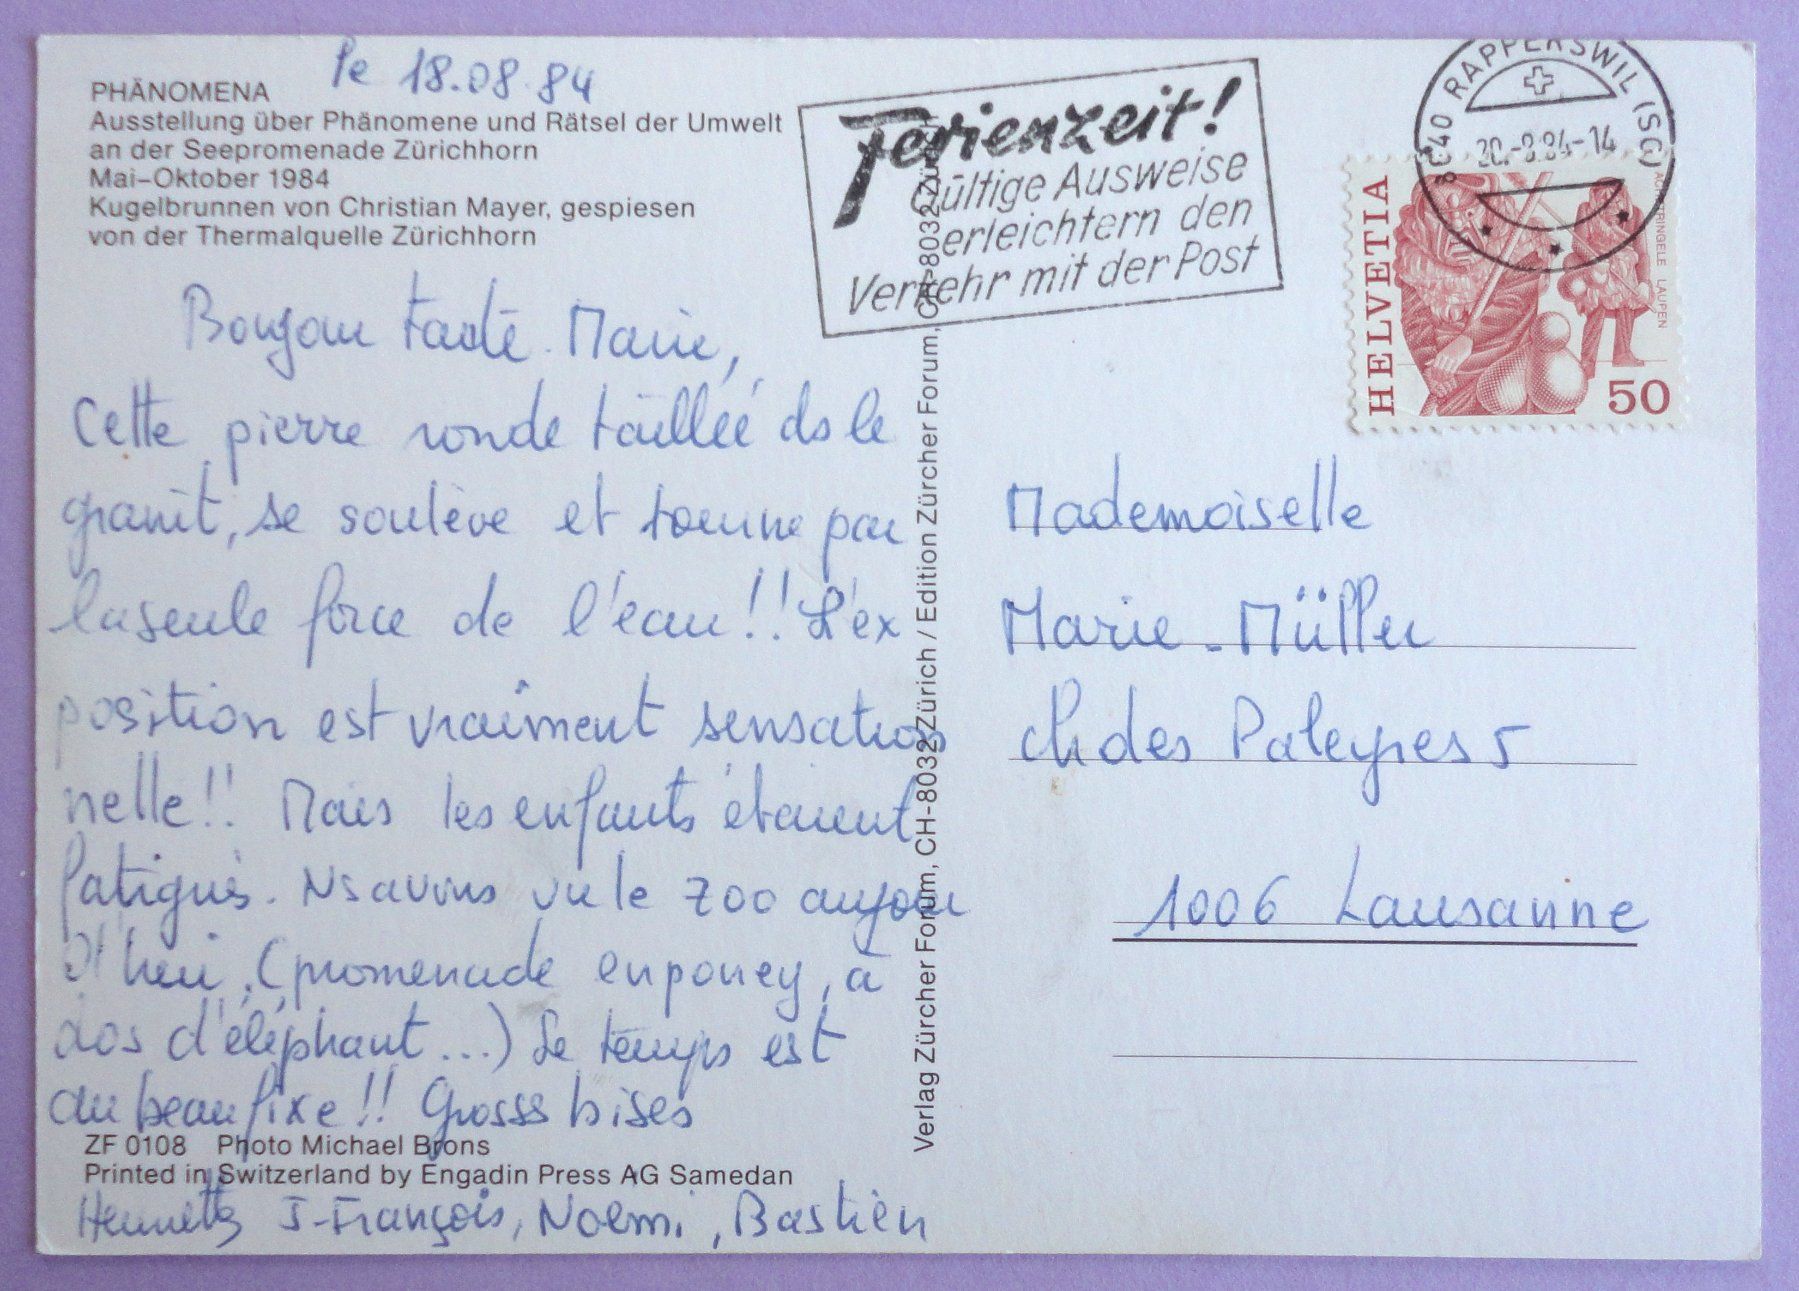 le 18.08.84
PHÄNOMENA
Ausstellung über Phänomene und Rätsel der Umwelt
an der Seepromenade Zürichhorn
Mai–Oktober 1984
Kugelbrunnen von Christian Mayer, gespiesen
von der Thermalquelle Zürichhorn
Bonjour tante Marie,
Cette pierre ronde taillée ds le
granit, se soulève et tourne par
la seule force de l'eau!! L'ex
position est vraiment sensation
nelle!! Mais les enfants étaient
fatigués. Ns avons vu le zoo aujour
d'hui, (promenade en poney, à
dos d'éléphant...) Le temps est
au beau fixe!! Grosss bises
ZF 0108 Photo Michael Brons
Printed in Switzerland by Engadin Press AG Samedan
J-François, Noémi, Bastien
Verlag Zürcher Forum, CH-8032 Zürich / Edition Zürcher Forum, CH-8032 Zürich
Ferienzeit!
Gültige Ausweise
erleichtern den
Verkehr mit der Post
8640 RAPPERSWIL (SG)
20.-8.84-14
HELVETIA
ACHETRINGELE LAUPEN
50
Mademoiselle
Marie-Müller
ch des Paleyres 5
1006 Lausanne